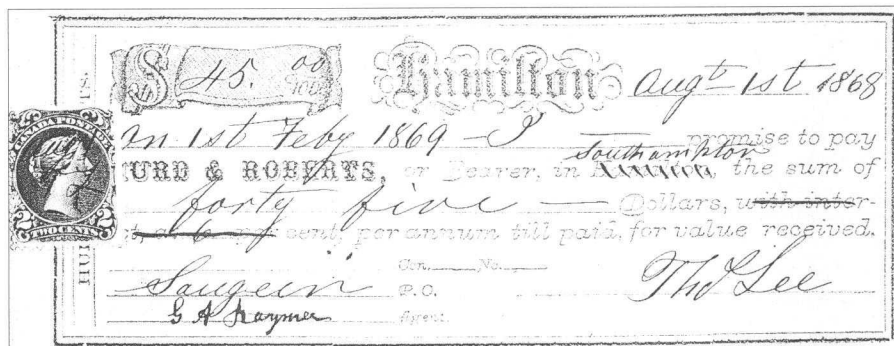 $ 45. 00/100 Hamilton Augt 1st 1868
On 1st Feby 1869 — I promise to pay
HURD & ROBERTS, or Bearer, in Southampton, the sum of
forty five — Dollars, with inter-
at per cent, per annum till paid, for value received.
Con. No.
Saugeen P.O. Thos Lee
G A Agent.
CANADA POSTAGE
TWO CENTS
HUR